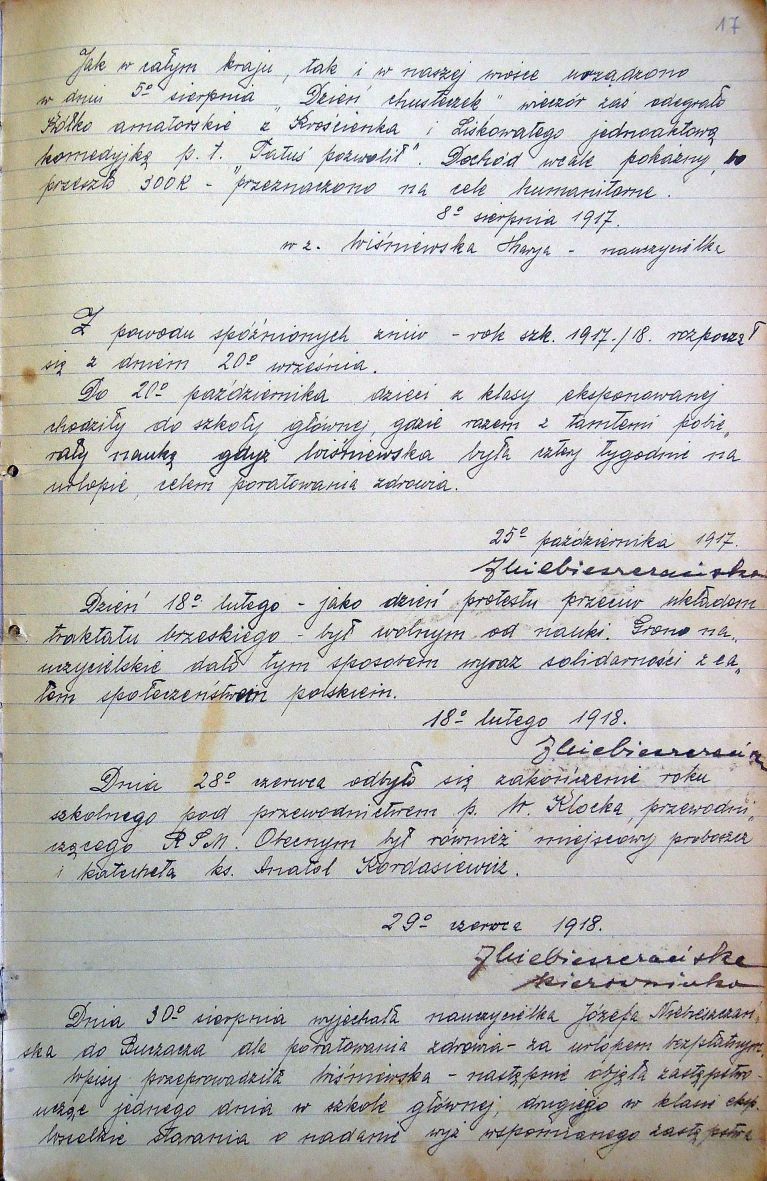 17
Jak w całym kraju, tak i w naszej wiosce urządzono
w dniu 5º sierpnia "Dzień chusteczek" wieczór zaś odegrało
Kółko amatorskie z Krościenka i Liskowatego jednoaktową
komedyjkę p. t. "Tatuś pozwolił". Dochód wcale pokaźny, bo
przeszło 300 K - przeznaczono na cele humanitarne.
8º sierpnia 1917.
w z. Wiśniewska Marya - nauczycielka
Z powodu spóźnionych żniw - rok szk. 1917./18. rozpoczął
się z dniem 20º września.
Do 20º października dzieci z klasy eksponowanej
chodziły do szkoły głównej gdzie razem z tamtemi pobie„
rały naukę gdyż Wiśniewska była cztery tygodnie na
urlopie, celem poratowania zdrowia.
25º października 1917.
Dzień 18º lutego - jako dzień protestu przeciw układom
traktatu brzeskiego - był wolnym od nauki. Grono na„
uczycielskie dało tym sposobem wyraz solidarności z ca„
łem społeczeństwem polskiem.
18º lutego 1918.
Dnia 28º czerwca odbyło się zakończenie roku
szkolnego pod przewodnictwem p. Kłocka, przewodni„
czącego RSM. Obecnym był również miejscowy proboszcz
i katecheta ks. Anatol Kordasiewicz.
29º czerwca 1918.
kierowniczka
Dnia 30º sierpnia wyjechała nauczycielka Józefa Niebieszczań„
ska do Buczacza dla poratowania zdrowia - za urlopem bezpłatnym.
Wpisy przeprowadziła Wiśniewska - następnie objęła zastępstwo -
ucząc jednego dnia w szkole głównej, drugiego w klasie eksp.
Wszelkie starania o nadanie wyż wspomnianego zastępstwa